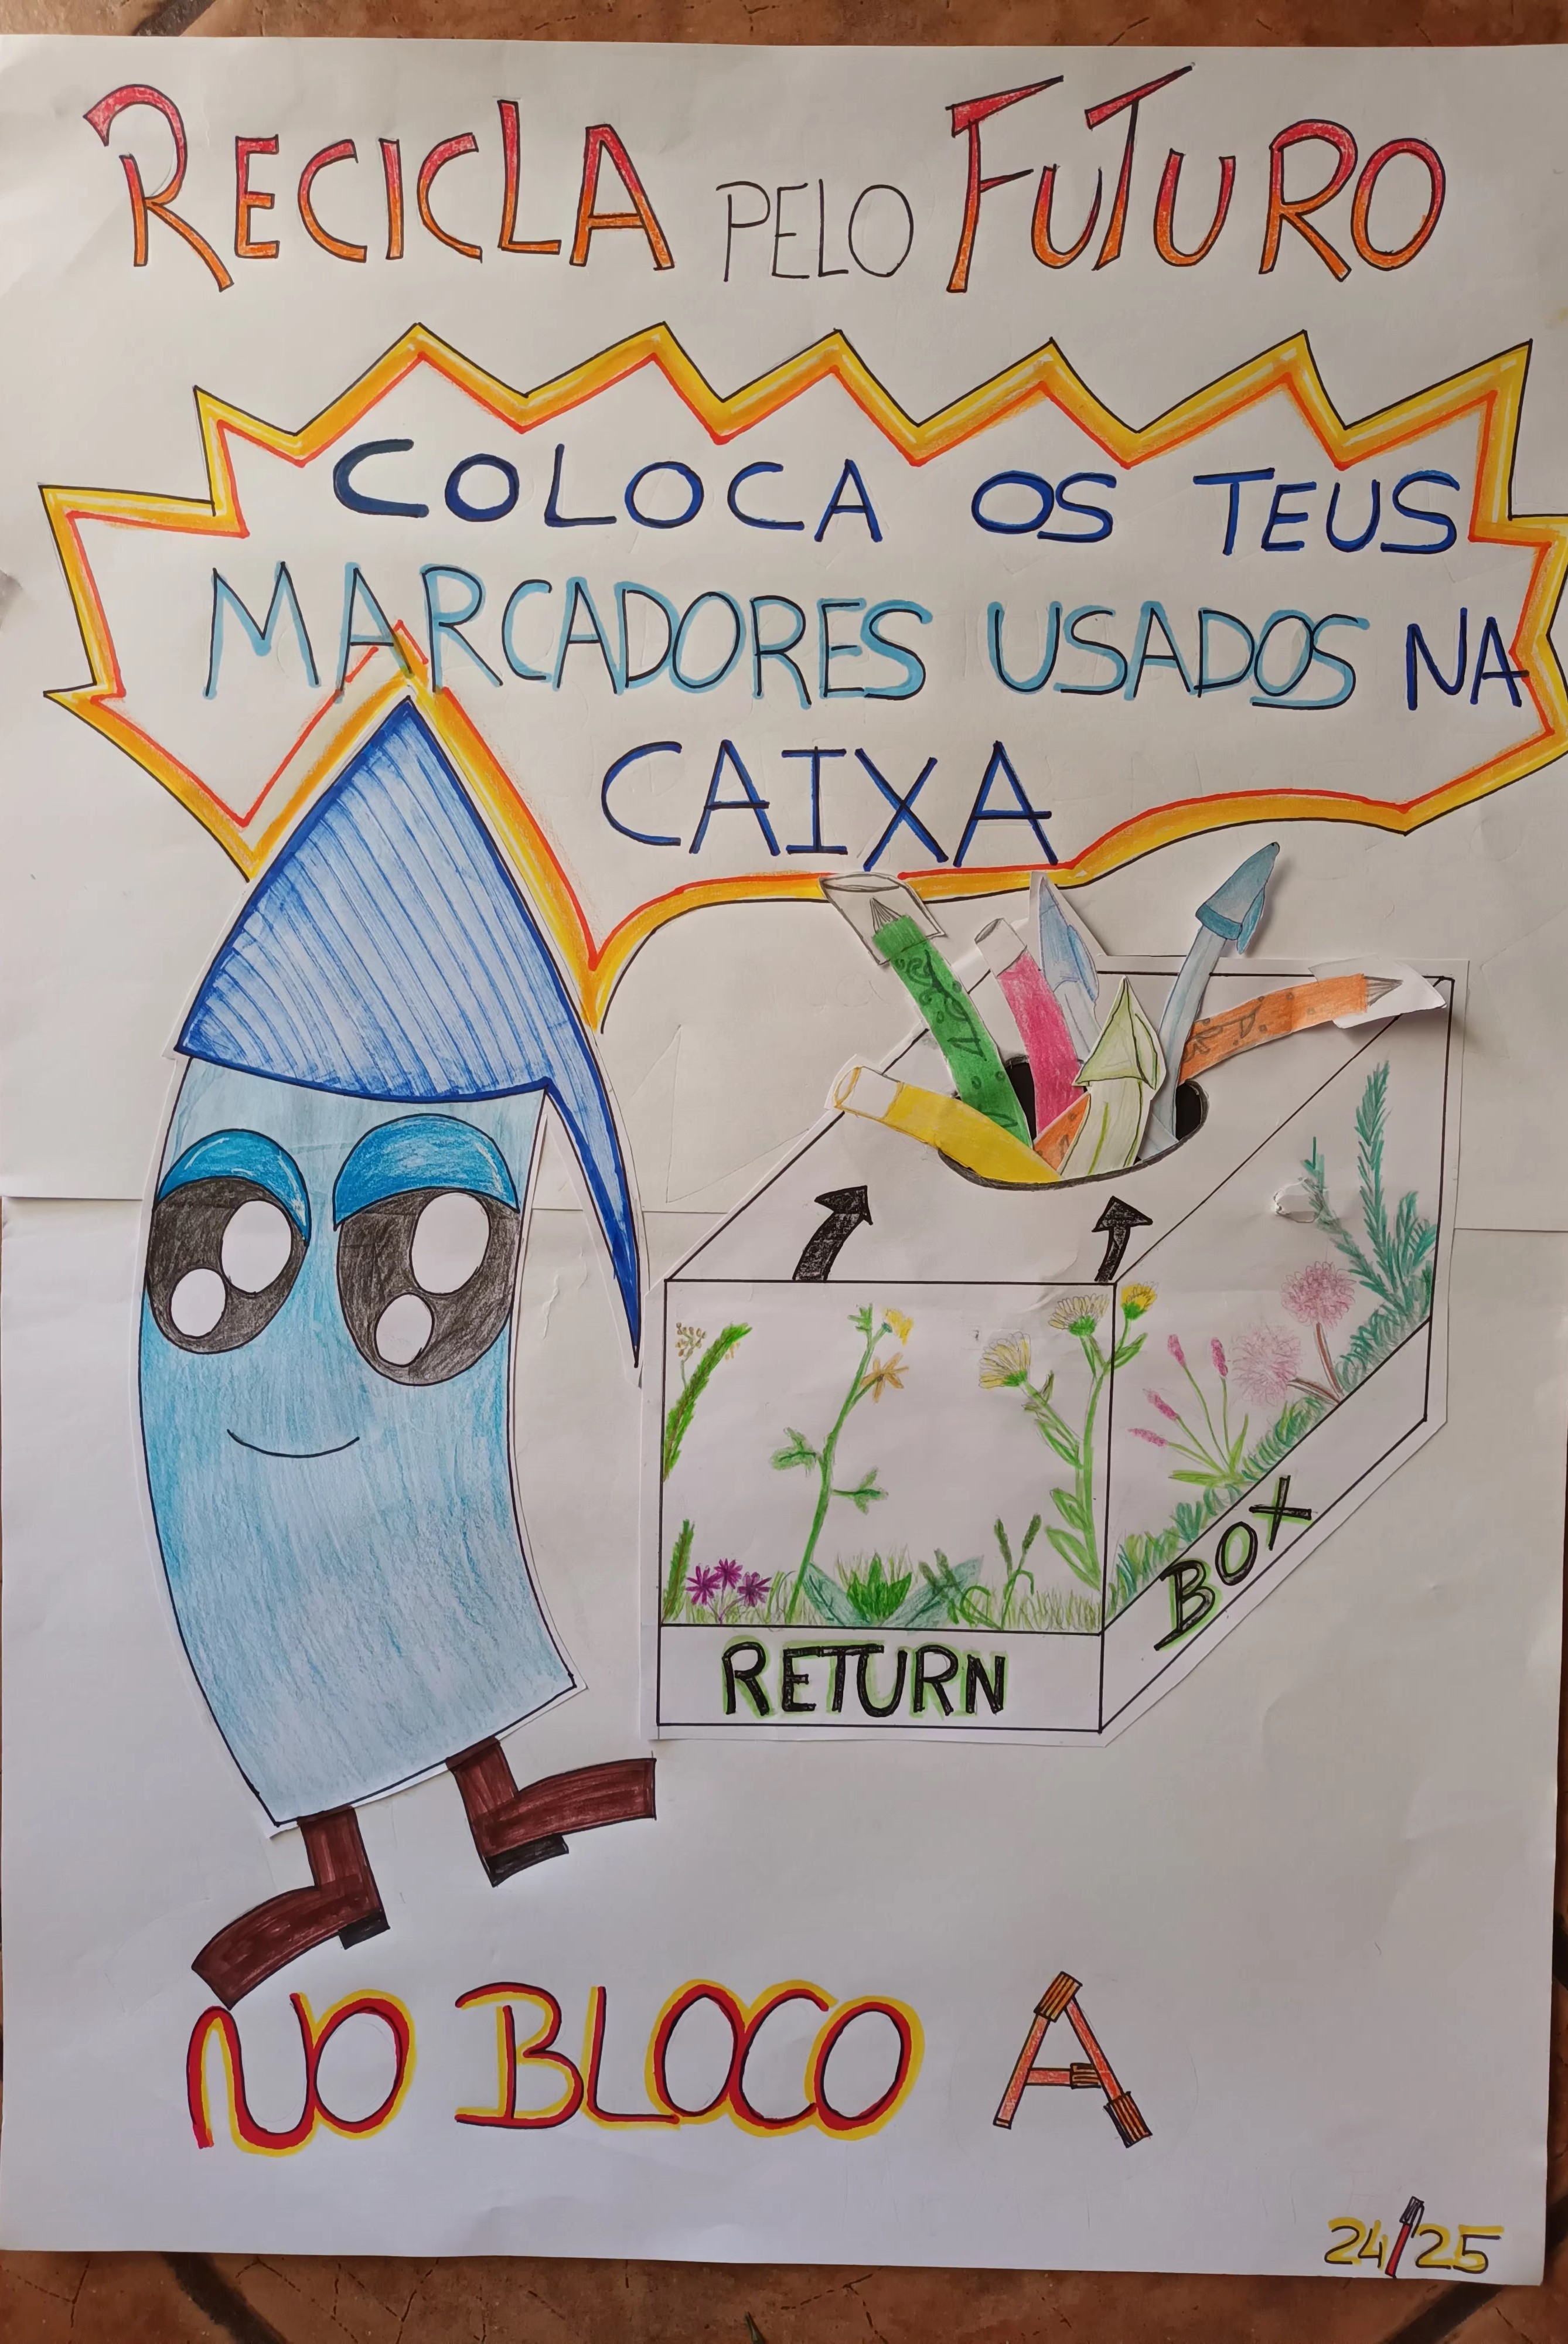 RECICLA PELO FUTURO
COLOCA OS TEUS
MARCADORES USADOS NA
CAIXA
RETURN
BOX
NO BLOCO A
24/25